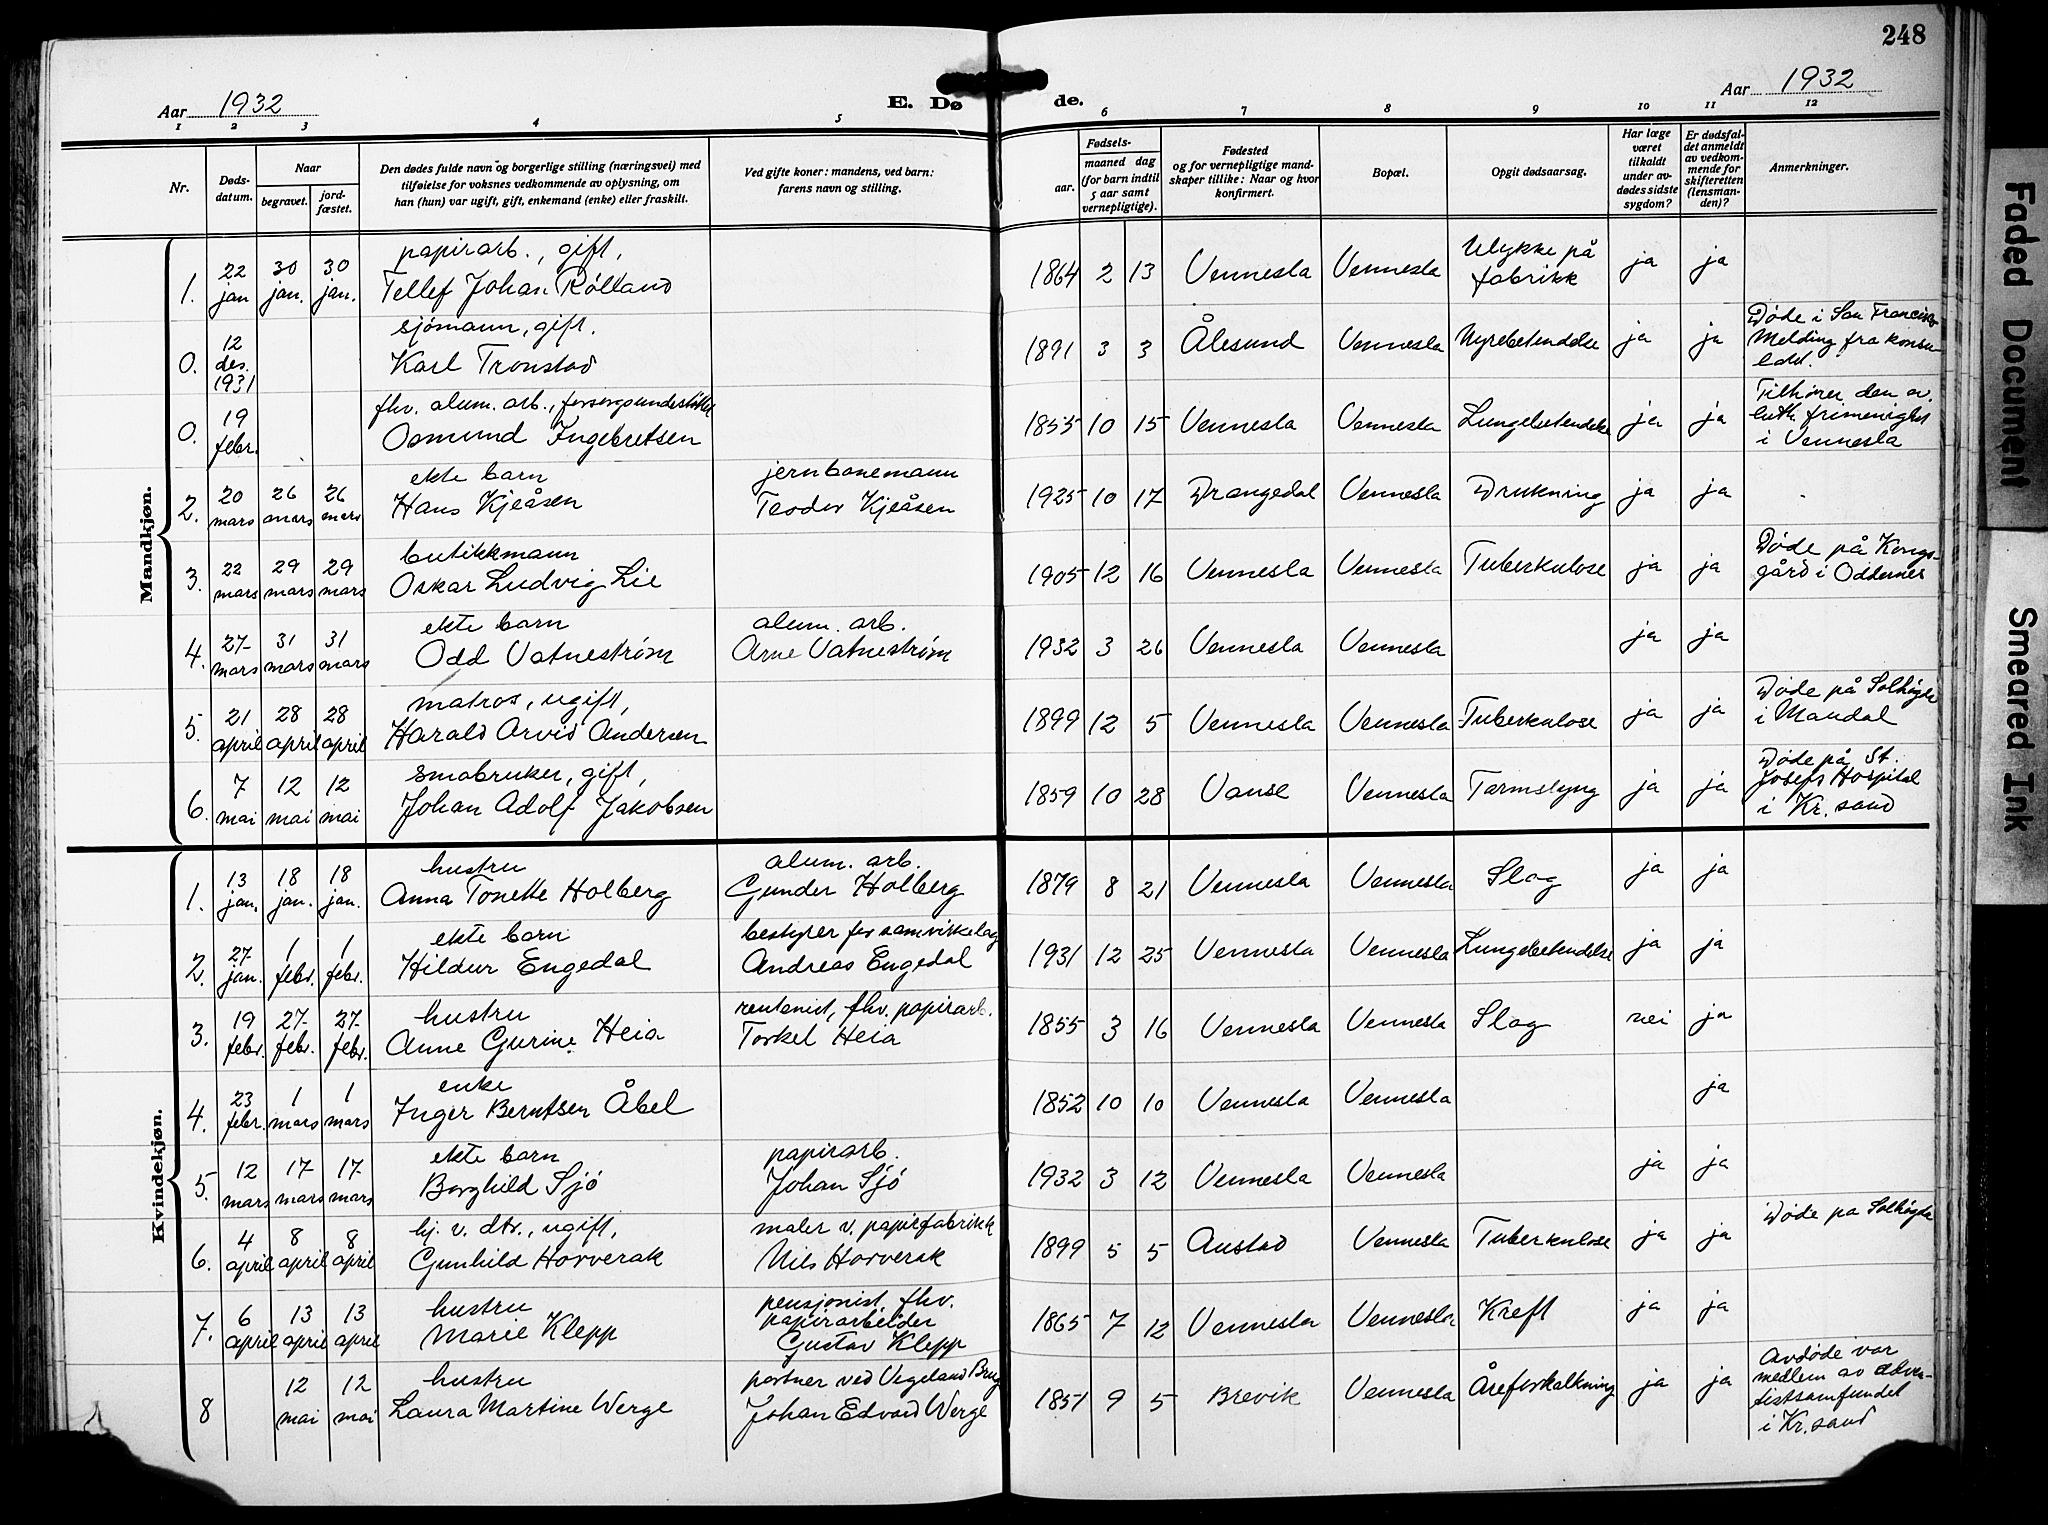 248
Aar 1932
E. Dø de.
Aar 1932
1 2 3 4 5 6 7 8 9 10 11 12
Nr.
Døds-
datum.
Naar
begravet.
jord-
fæstet.
Den dødes fulde navn og borgerlige stilling (næringsvei) med
tilføielse for voksnes vedkommende av oplysning, om
han (hun) var ugift, gift, enkemand (enke) eller fraskilt.
Ved gifte koner: mandens, ved barn:
farens navn og stilling.
Fødsels-
aar.
maaned dag
(for barn indtil
5 aar samt
vernepligtige).
Fødested
og for vernepligtige mand-
skaper tillike: Naar og hvor
konfirmert.
Bopæl.
Opgit dødsaarsag.
Har læge
været
tilkaldt
under av-
dødes sidste
sygdom?
Er dødsfal-
det anmeldt
av vedkom-
mende for
skifteretten
(lensman-
den)?
Anmerkninger.
Mandkjøn.
papirarb., gift,
1. 22 jan 30 jan. 30 jan. Tellef Johan Rølland 1864 2 13 Vennesla Vennesla Ulykke på fabrikk ja ja
sjömann, gift.
0. 12 des. 1931 Karl Tronstad 1891 3 3 Ålesund Vennesla Nyrebetendelse ja ja Døde i San Francisco Melding fra
fhv. alum. arb.,
0. 19 febr. Osmund Ingebretsen 1855 10 15 Vennesla Vennesla Lungebetendelse ja ja Tilhører den ev. luth. frimenighet i Vennesla
ekte barn jernbanemann
2. 20 mars 26 mars 26 mars Hans Kjeåsen Teodor Kjeåsen 1925 10 17 Drangedal Vennesla Drukning ja ja
butikkmann
3. 22 mars 29 mars 29 mars Oskar Ludvig Lie 1905 12 16 Vennesla Vennesla Tuberkulose ja ja Døde på Kongs-gård i Oddernes
ekte barn alum. arb.
4. 27 mars 31 mars 31 mars Odd Vatnestrøm Arne Vatnestrøm 1932 3 26 Vennesla Vennesla ja ja
matros, ugift,
5. 21 april 28 april 28 april Harald Arvid Andersen 1899 12 5 Vennesla Vennesla Tuberkulose ja ja Døde på Solhøgda i Mandal
småbruker, gift,
6. 7 mai 12 mai 12 mai Johan Adolf Jakobsen 1859 10 28 Vanse Vennesla Tarmslyng ja ja Døde på St. Josefs Hospital i Kr. sand
Kvindekjøn.
hustru alum. arb.
1. 13 jan. 18 jan. 18 jan. Anna Tonette Holberg Gunder Holberg 1879 8 21 Vennesla Vennesla Slag ja ja
ekte barn bestyrer for samvirkelag
2. 27 jan. 1 febr. 1 febr. Hildur Engedal Andreas Engedal 1931 12 25 Vennesla Vennesla Lungebetendelse ja ja
hustru rentenist, fhv. papirarb.
3. 19 febr. 27 febr. 27 febr. Anne Gurine Heia Torkel Heia 1855 3 16 Vennesla Vennesla Slag nei ja
enke
4. 23 febr. 1 mars 1 mars Inger Berntsen Åbel 1852 10 10 Vennesla Vennesla ja
ekte barn papirarb.
5. 12 mars 17 mars 17 mars Borghild Sjö Johan Sjö 1932 3 12 Vennesla Vennesla ja ja
hj. v. dtr., ugift, maler v. papirfabrikk
6. 4 april 8 april 8 april Gunhild Horverak Nils Horverak 1899 5 5 Austad Vennesla Tuberkulose ja ja Døde på Solhøgda
hustru pensjonist, fhv. papirarbeider
7. 6 april 13 april 13 april Marie Klepp Gustav Klepp 1865 7 12 Vennesla Vennesla Kreft ja ja
hustru portner ved Vigeland Brug
8 12 mai 12 mai Laura Martine Werge Johan Edvard Werge 1851 9 5 Brevik Vennesla Åreforkalkning ja ja Avdøde var medlem av adven-tistsamfundet i Kr. sand
Faded Document
Smeared Ink